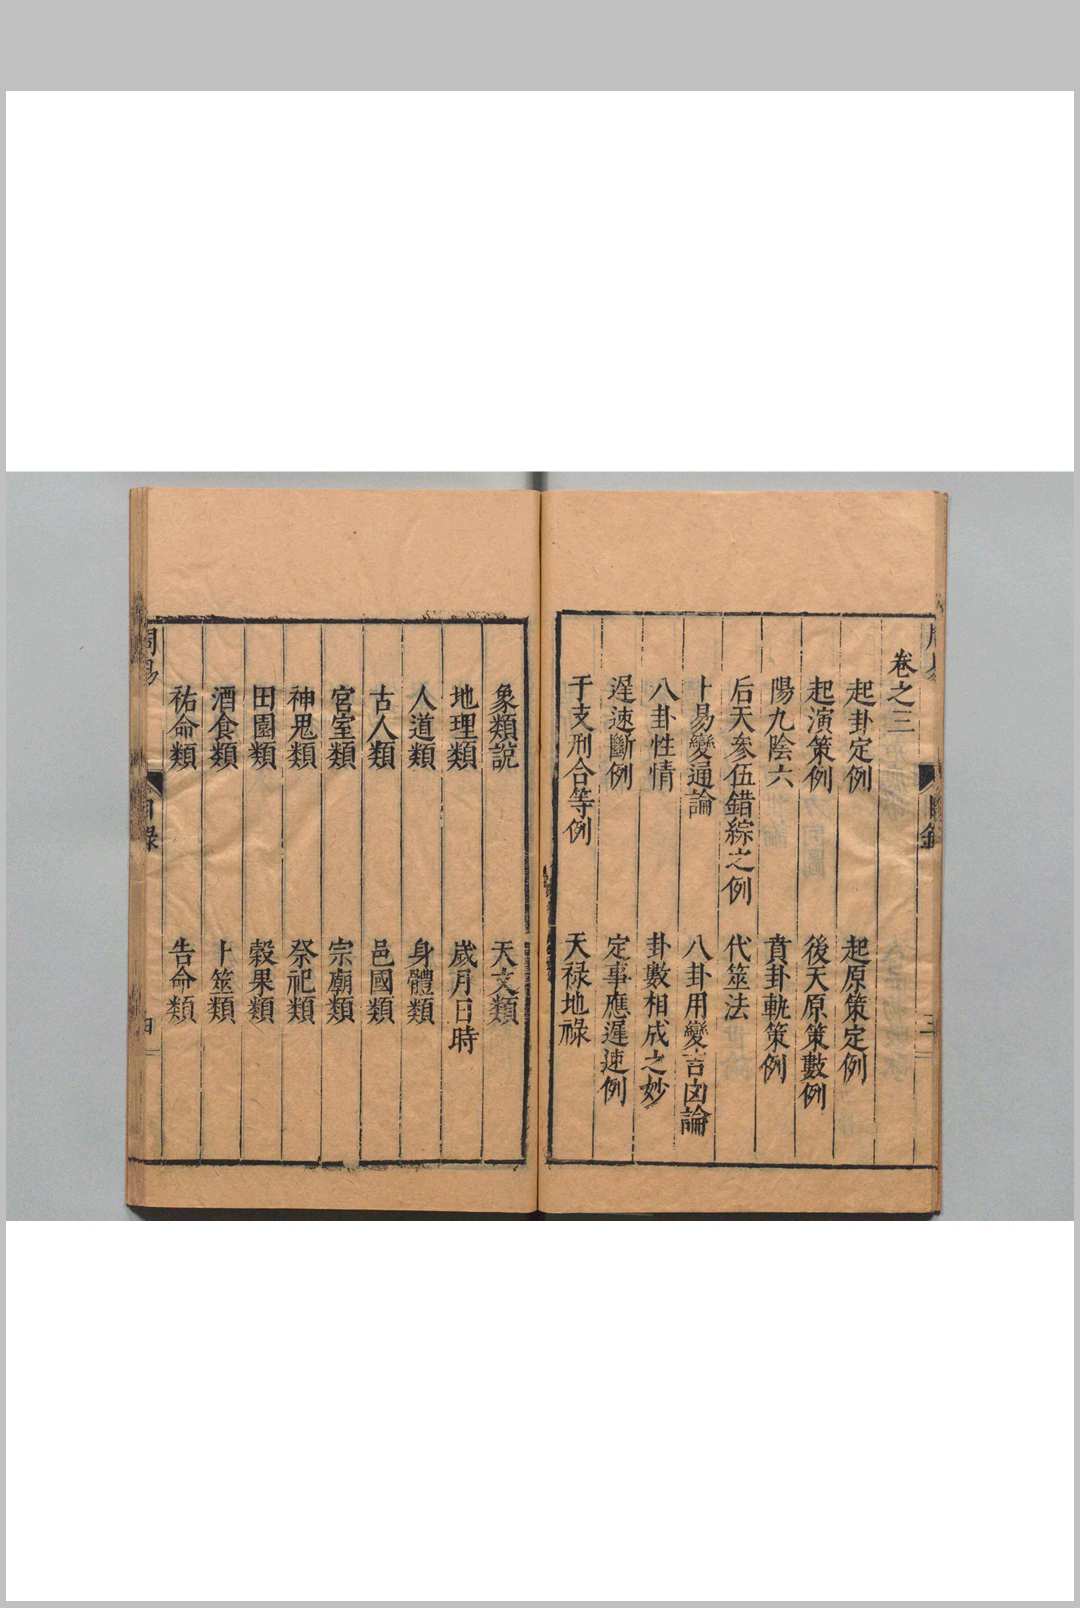 卷之三
起卦定例　起原策定例
起演策例　後天原策數例
陽九陰六　賁卦軌策例
后天參伍錯綜之例　代筮法
卜易變通論　八卦用變吉凶論
八卦性情　卦數相成之妙
遲速斷例　定事應遲速例
干支刑合等例　天禄地祿
象類說　天文類
地理類　歲月日時
人道類　身體類
古人類　邑國類
宮室類　宗廟類
神鬼類　祭祀類
田園類　穀果類
酒食類　卜筮類
祐命類　告命類
周易　目錄　四